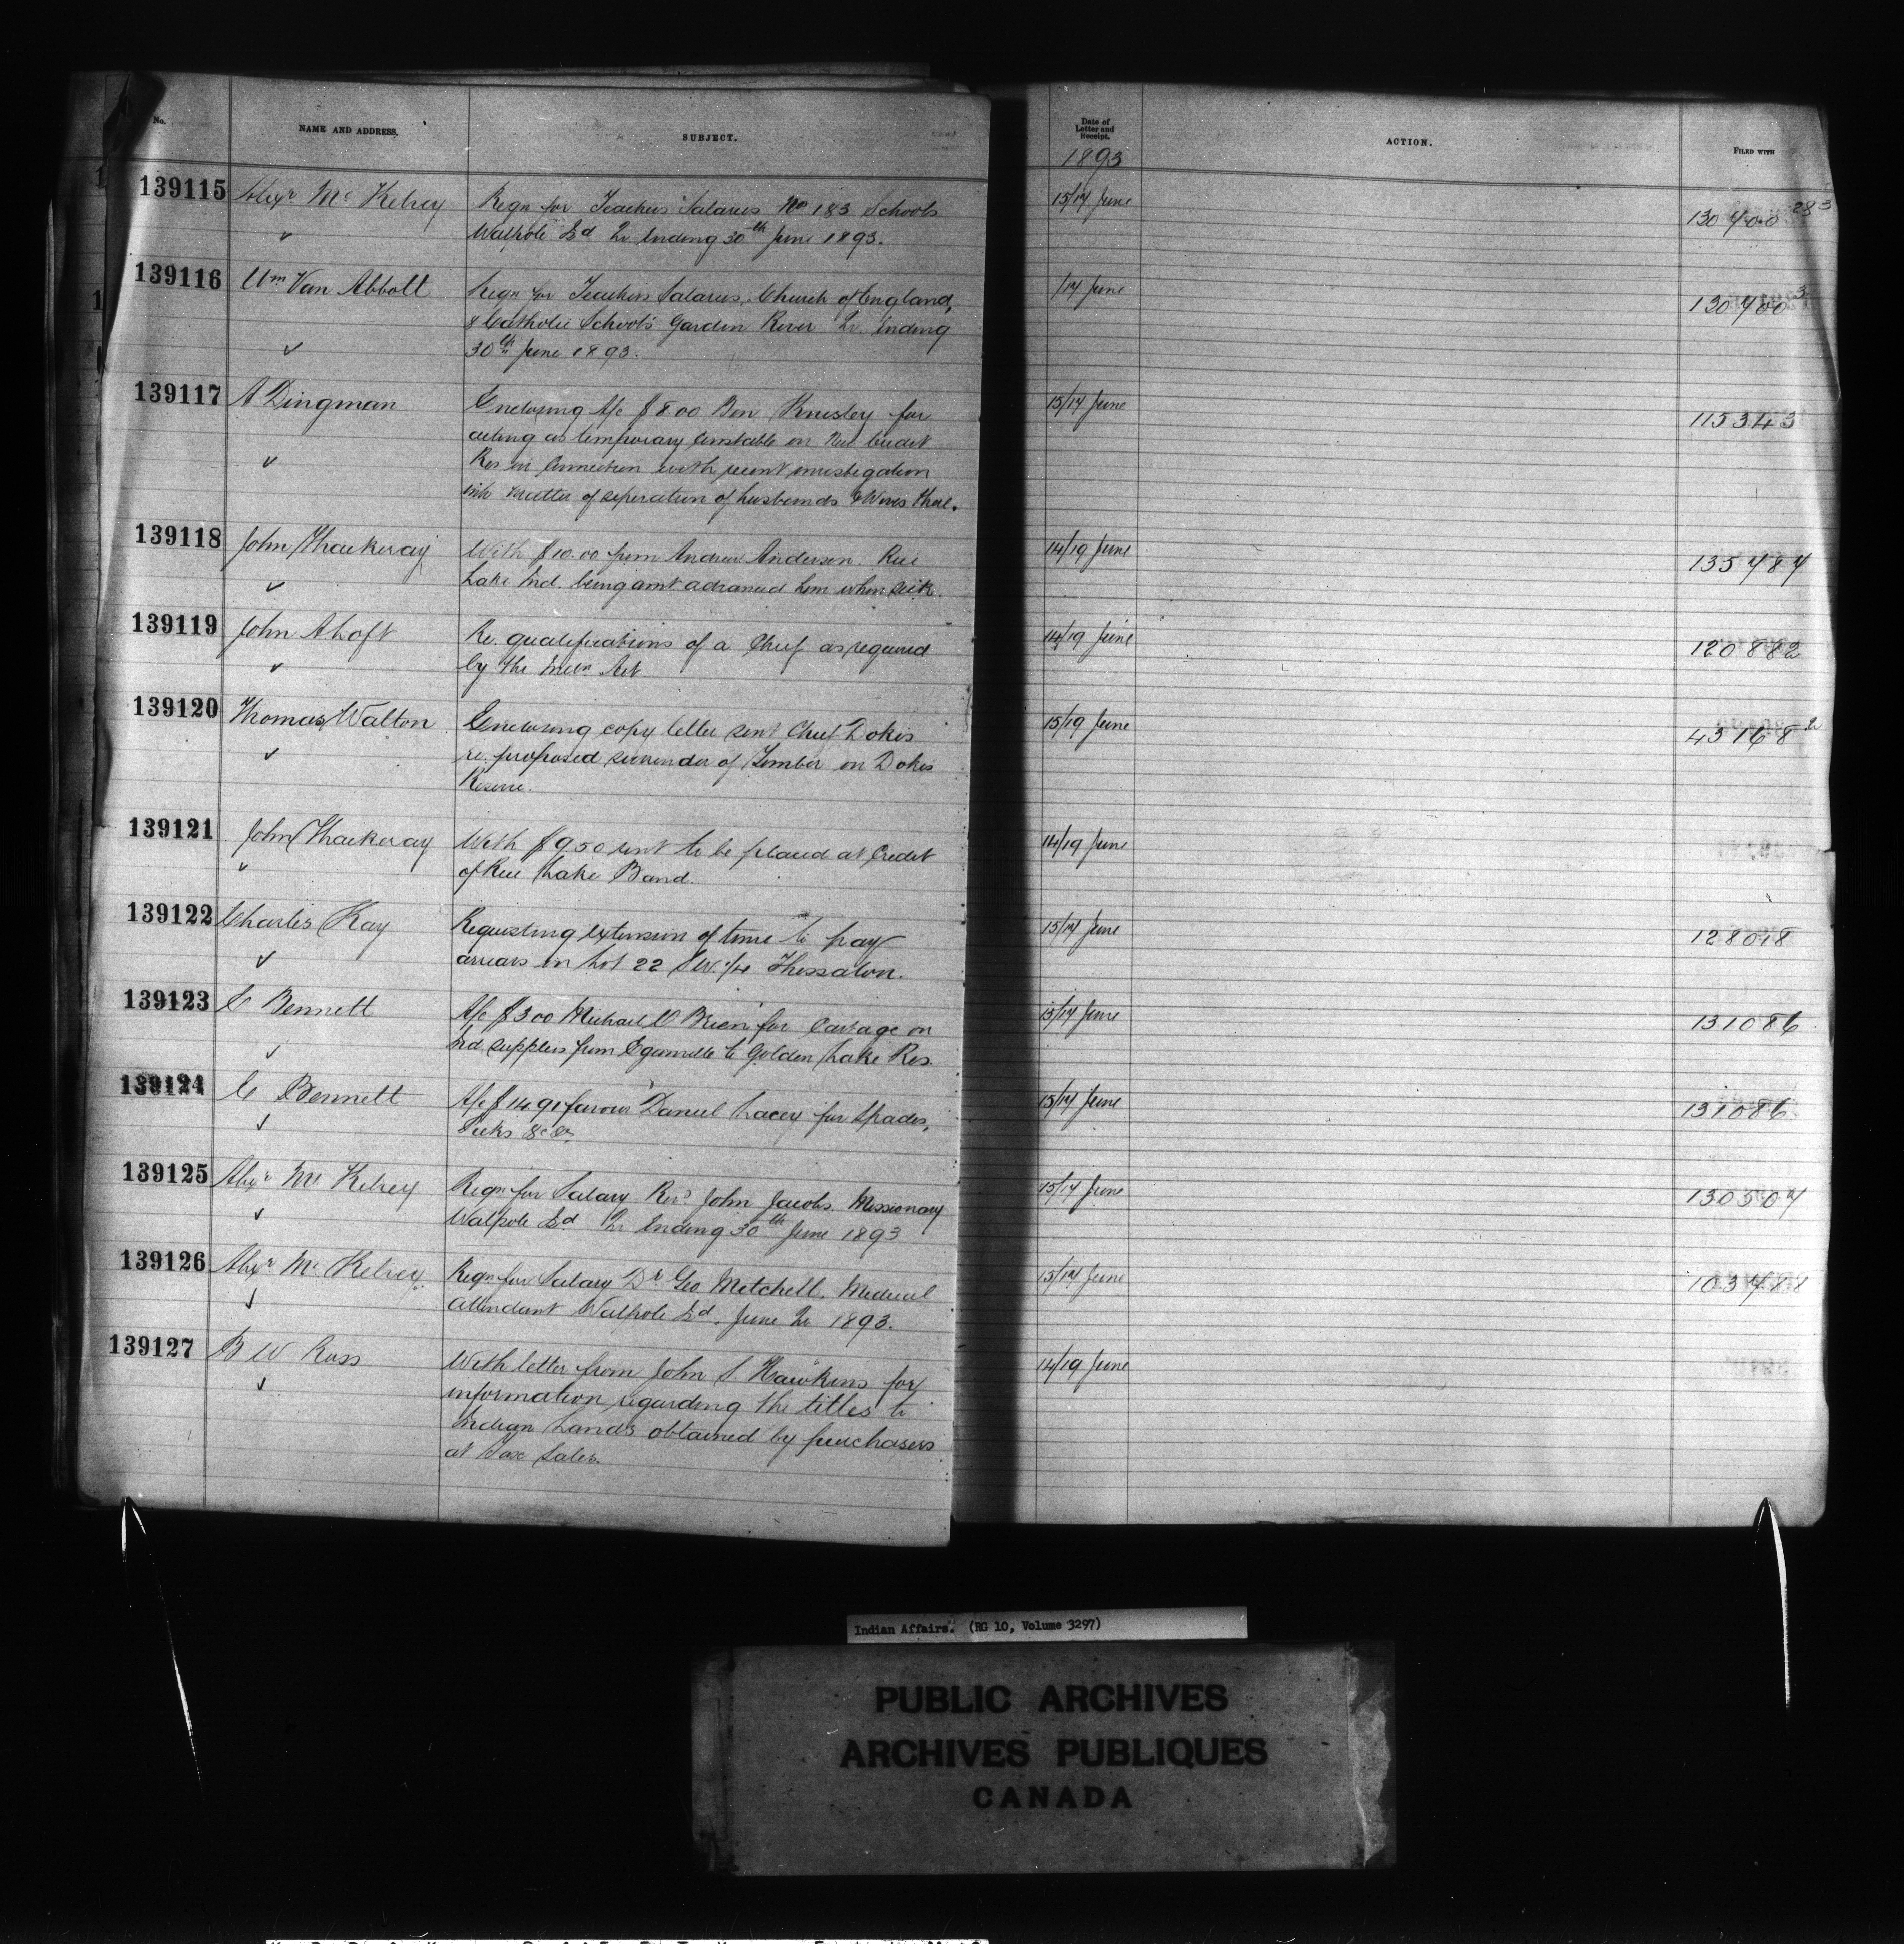 No. NAME AND ADDRESS. SUBJECT. Date of Letter and Receipt. ACTION. FILED WITH
1893
139115 Alexr McKelvey Reqn for Teachers Salaries No 1 & 3 Schools 15/17 June 130400
Walpole Isd Qr Ending 30th June 1893.
139116 Wm Van Abbott Reqn for Teachers Salaries, Church of England, /17 June 130400 3
& Catholic Schools Garden River Qr Ending
30th June 1893.
139117 A Dingman Enclosing A/c $8.00 Ben Knisley for 15/17 June 115343
acting as temporary Constable on New Credit
Res in Connection with recent investigation
into matter of seperation of husbands & Wives there.
139118 John Thackeray With $10.00 from Andrew Anderson Rice 14/19 June 135484
Lake Ind. being amt advanced him when sick.
139119 John A Loft Re. qualifications of a Chief as required 14/19 June 120882
by the Indn Act
139120 Thomas Walton Enclosing copy letter sent Chief Dokis 15/19 June 43168 2
re. proposed surrender of Timber on Dokis
Reserve.
139121 John Thackeray With $9.50 rent to be placed at Credit 14/19 June
of Rice Lake Band.
139122 Charles Kay Requesting extension of time to pay 15/17 June 128018
arrears on Lot 22 S.W. 1/4 Thessalon.
139123 E Bennett A/c $3.00 Michael O'Brien for Cartage on 15/17 June 131086
Ind supplies from Eganville to Golden Lake Res.
139124 E Bennett A/c $14.91 favour Daniel Lacey for Spades, 15/17 June 131086
&c &c
139125 Alexr McKelvey Reqn for Salary Revd John Jacobs Missionary 15/17 June 130507
Walpole Isd Qr Ending 30th June 1893
139126 Alexr McKelvey Reqn for Salary Dr Geo Mitchell, Medical 15/17 June 103488
attendant Walpole Isd. June Qr 1893.
139127 B W Ross With letter from John S. Hawkins for 14/19 June
information regarding the titles to
Indian Lands obtained by purchasers
at Tax Sales.
Indian Affairs. (RG 10, Volume 3297)
PUBLIC ARCHIVES
ARCHIVES PUBLIQUES
CANADA